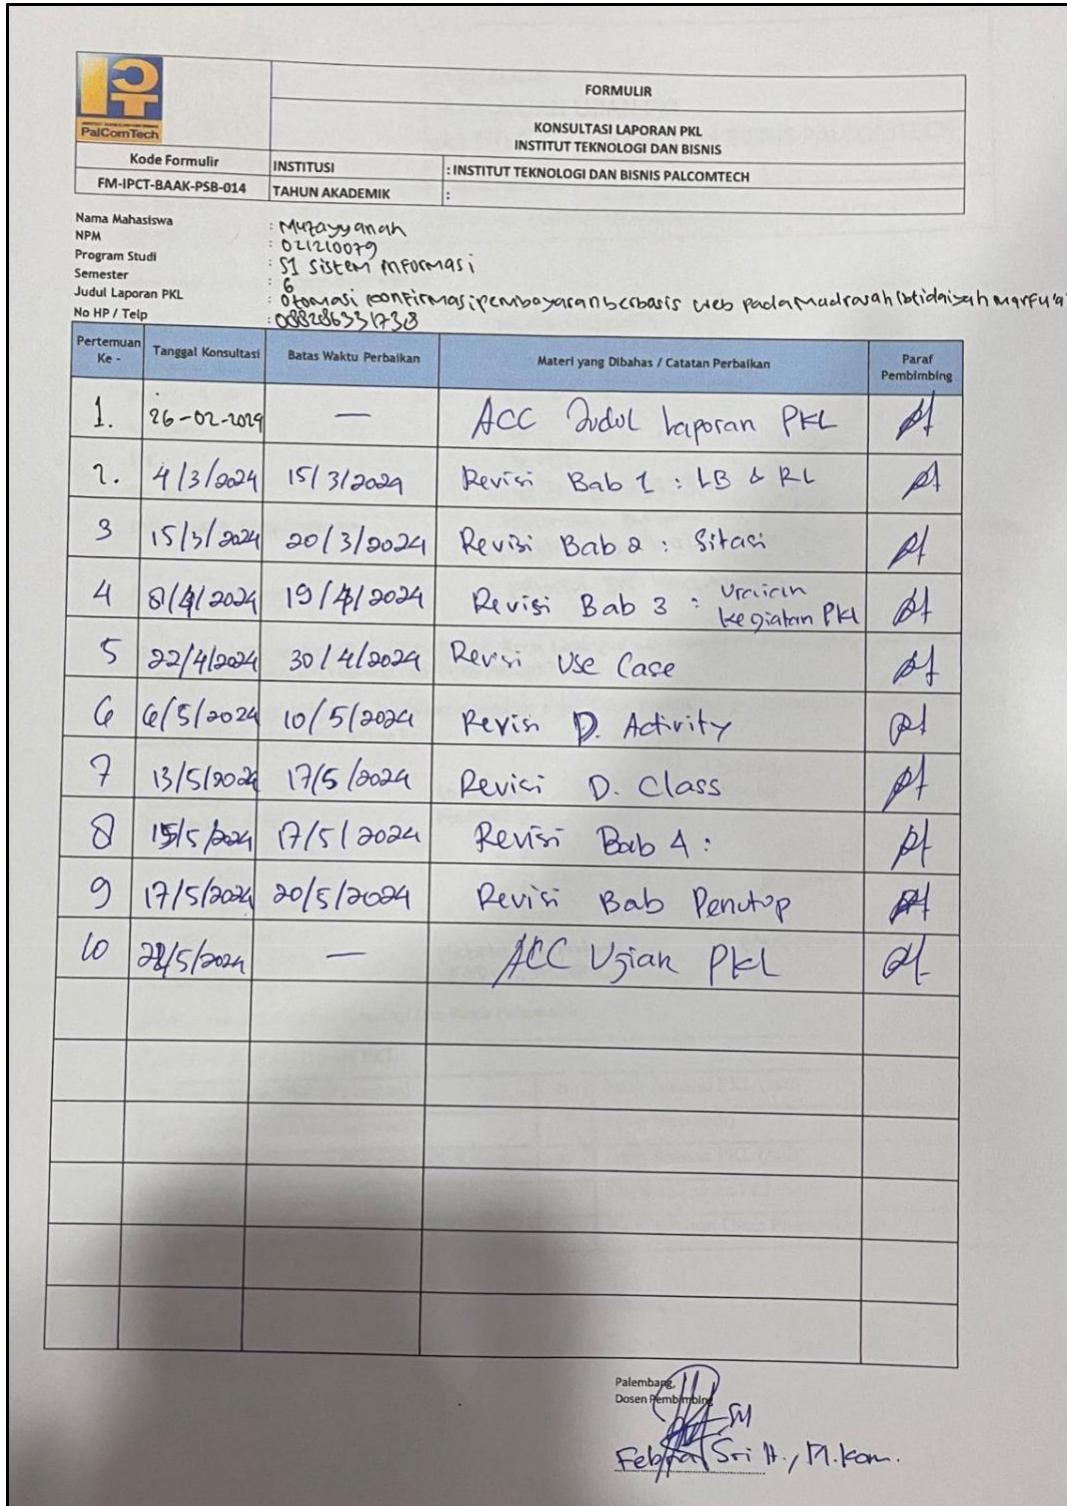 PalComTech
FORMULIR
KONSULTASI LAPORAN PKL
INSTITUT TEKNOLOGI DAN BISNIS
Kode Formulir
FM-IPCT-BAAK-PSB-014
INSTITUSI : INSTITUT TEKNOLOGI DAN BISNIS PALCOMTECH
TAHUN AKADEMIK :
Nama Mahasiswa : Muzayyanah
NPM : 021210079
Program Studi : S1 Sistem Informasi
Semester : 6
Judul Laporan PKL : Otomasi konfirmasi pembayaran berbasis web pada Madrasah Ibtidaiyah Marfu'a
No HP / Telp : 088286331738
Pertemuan Ke - Tanggal Konsultasi Batas Waktu Perbaikan Materi yang Dibahas / Catatan Perbaikan Paraf Pembimbing
1. 26-02-2024 — ACC Judul Laporan PKL
2. 4/3/2024 15/3/2024 Revisi Bab 1 : LB & RL
3 15/3/2024 20/3/2024 Revisi Bab 2 : Sitasi
4 8/4/2024 19/4/2024 Revisi Bab 3 : Uraian kegiatan PKL
5 22/4/2024 30/4/2024 Revisi Use Case
6 6/5/2024 10/5/2024 Revisi D. Activity
7 13/5/2024 17/5/2024 Revisi D. Class
8 15/5/2024 17/5/2024 Revisi Bab 4 :
9 17/5/2024 20/5/2024 Revisi Bab Penutup
10 /5/2024 — ACC Ujian PKL
Palembang,
Dosen Pembimbing
Sri H., M.Kom.